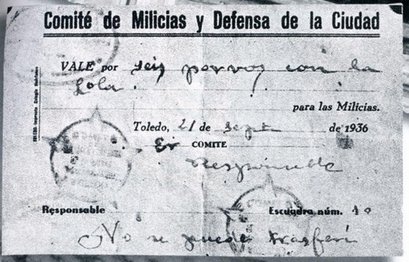 Comité de Milicias y Defensa de la Ciudad
VALE por seis porvos con la
Lola.
para las Milicias.
Toledo, 21 de Sept de 1936
Er COMITE
Responsable
Responsable Escuadra núm. 10
No se puede trasferí